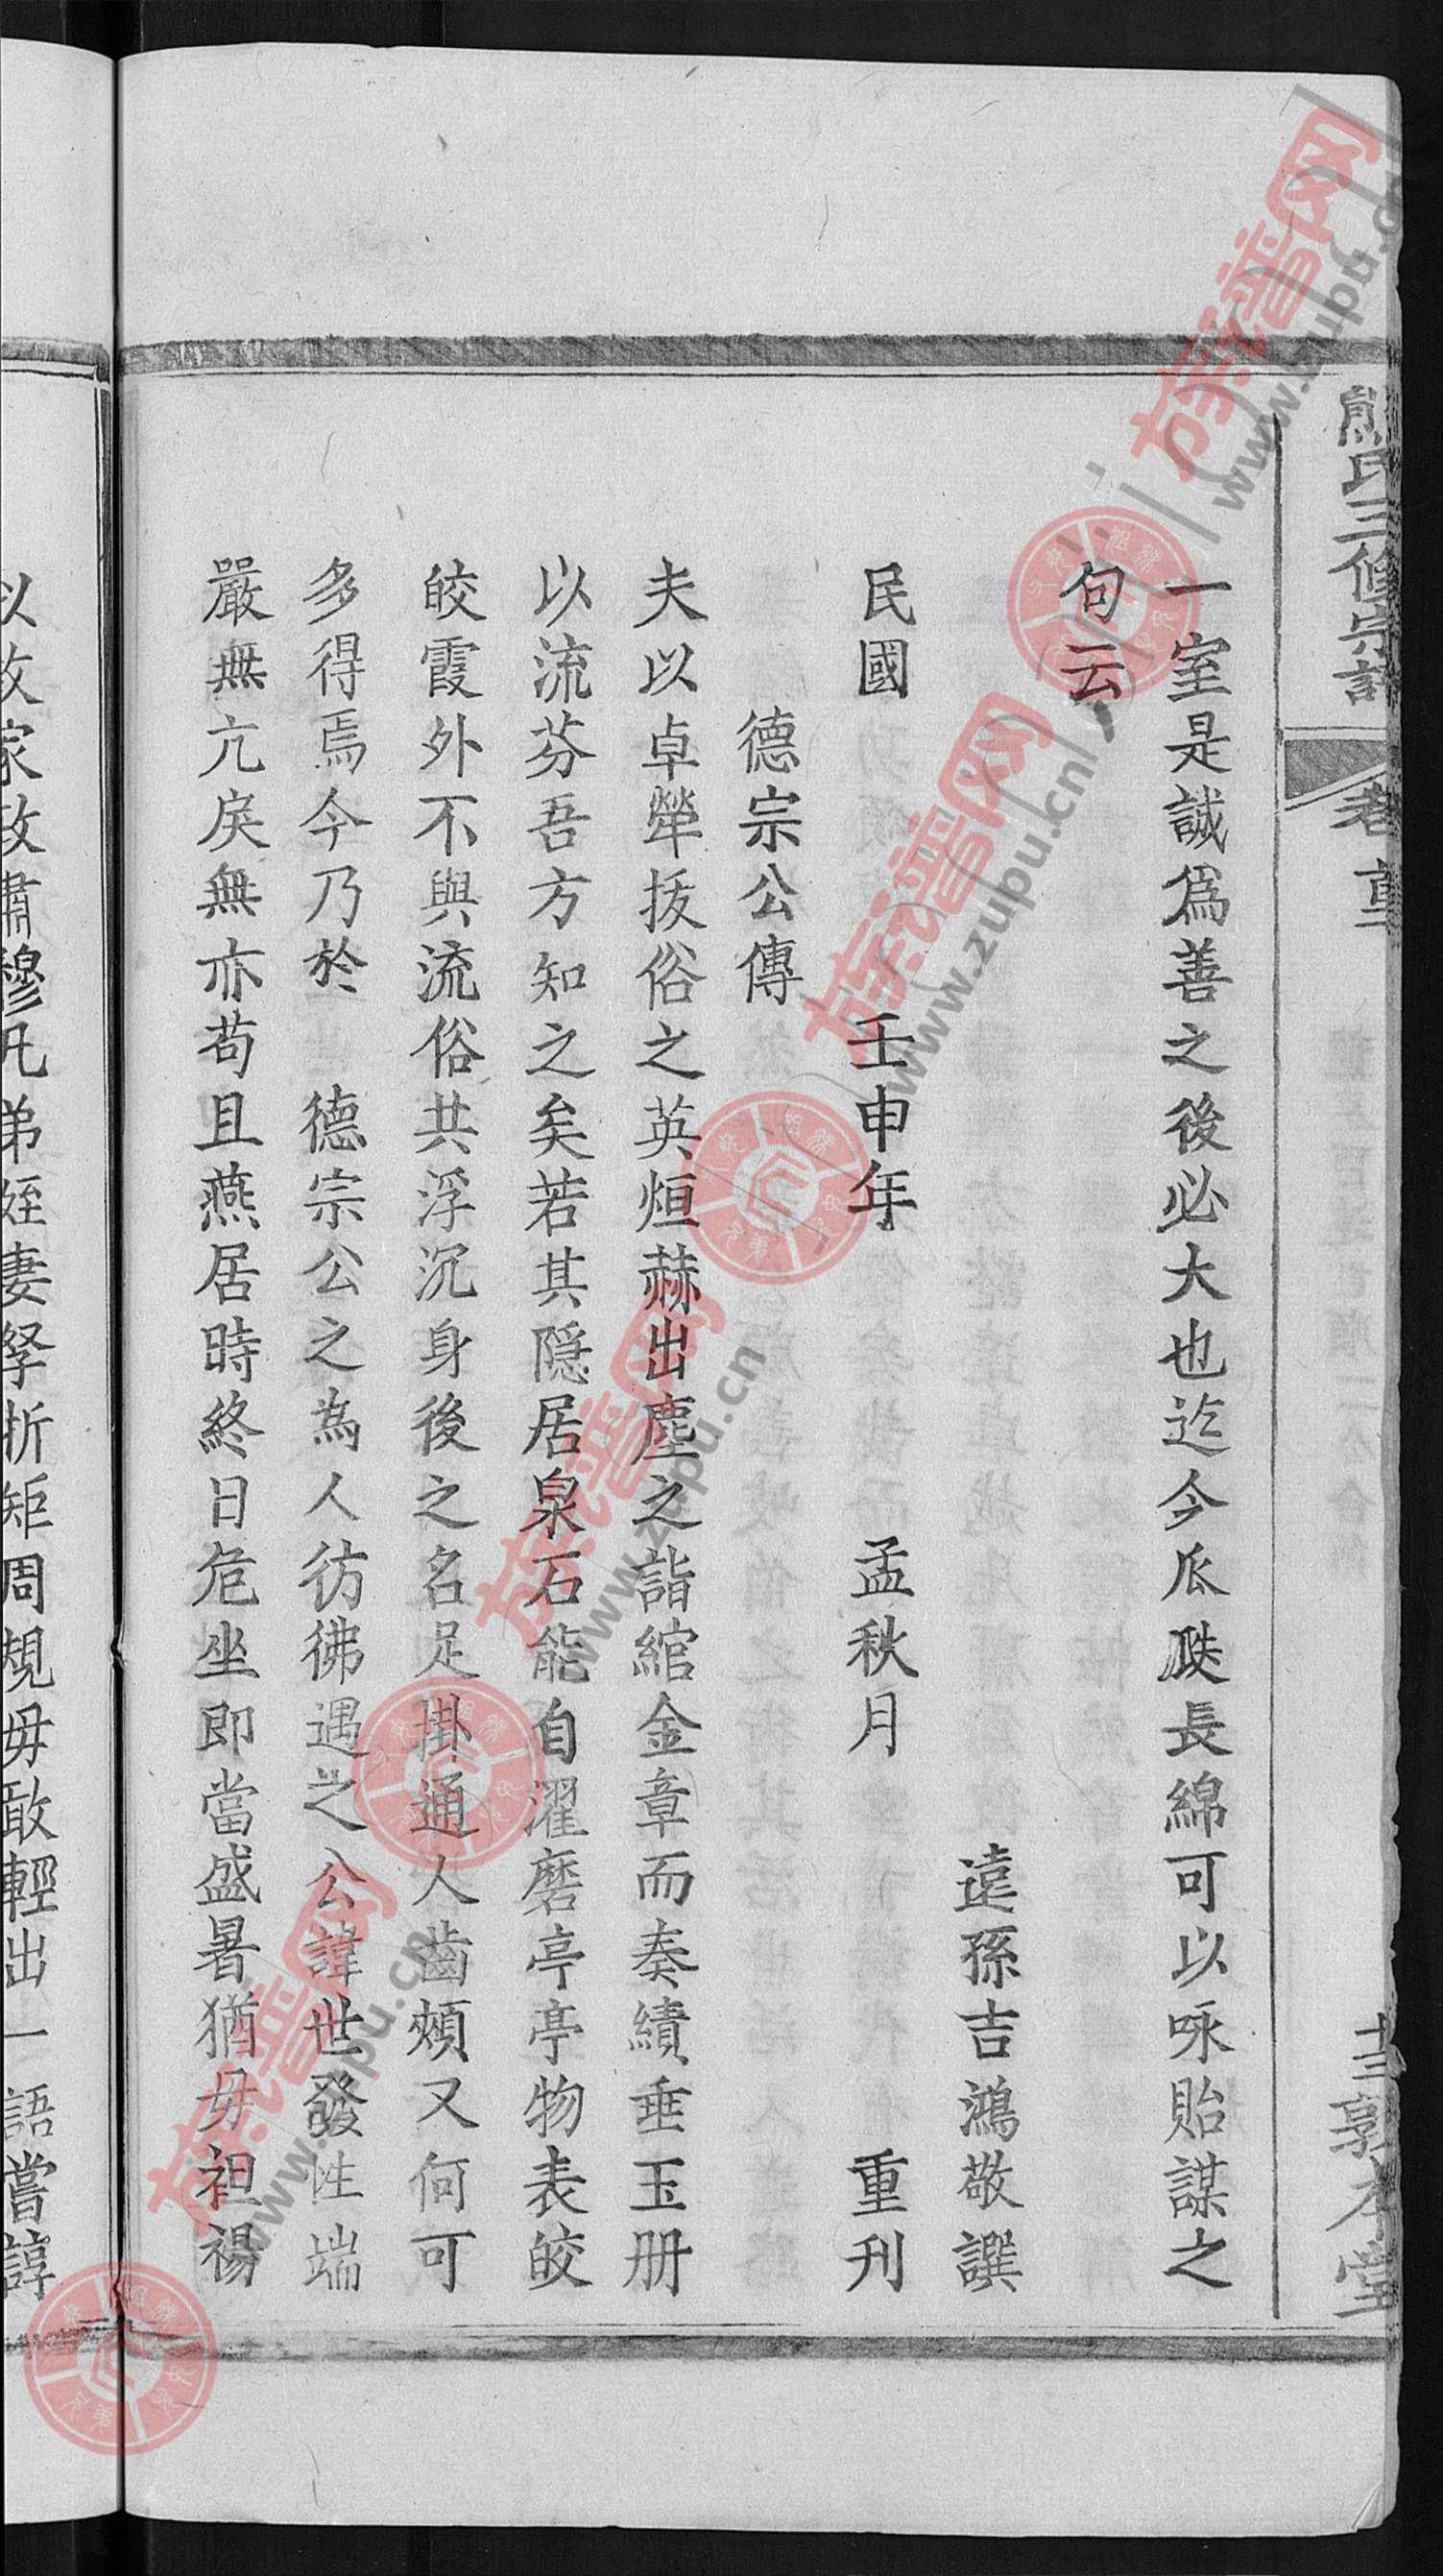 熊氏三修宗譜
卷首
敦本堂
一室是誠爲善之後必大也迄今瓜瓞長綿可以咏貽謀之
句云
遠孫吉鴻敬譔
民國 壬申年 孟秋月 重刊
德宗公傳
夫以卓犖拔俗之英烜赫出塵之詣綰金章而奏績垂玉册
以流芬吾方知之矣若其隱居泉石能自濯磨亭亭物表皎
皎霞外不與流俗共浮沉身後之名足掛通人齒頰又何可
多得焉今乃於 德宗公之為人彷彿遇之公諱世發性端
嚴無亢戾無亦苟且燕居時終日危坐即當盛暑猶毋袒裼
以故家政肅穆凡弟姪妻孥折矩周規毋敢輕出一語嘗諄
族譜网
www.zupu.cn
族譜网
www.zupu.cn
族譜网
www.zupu.cn
族譜网
www.zupu.cn